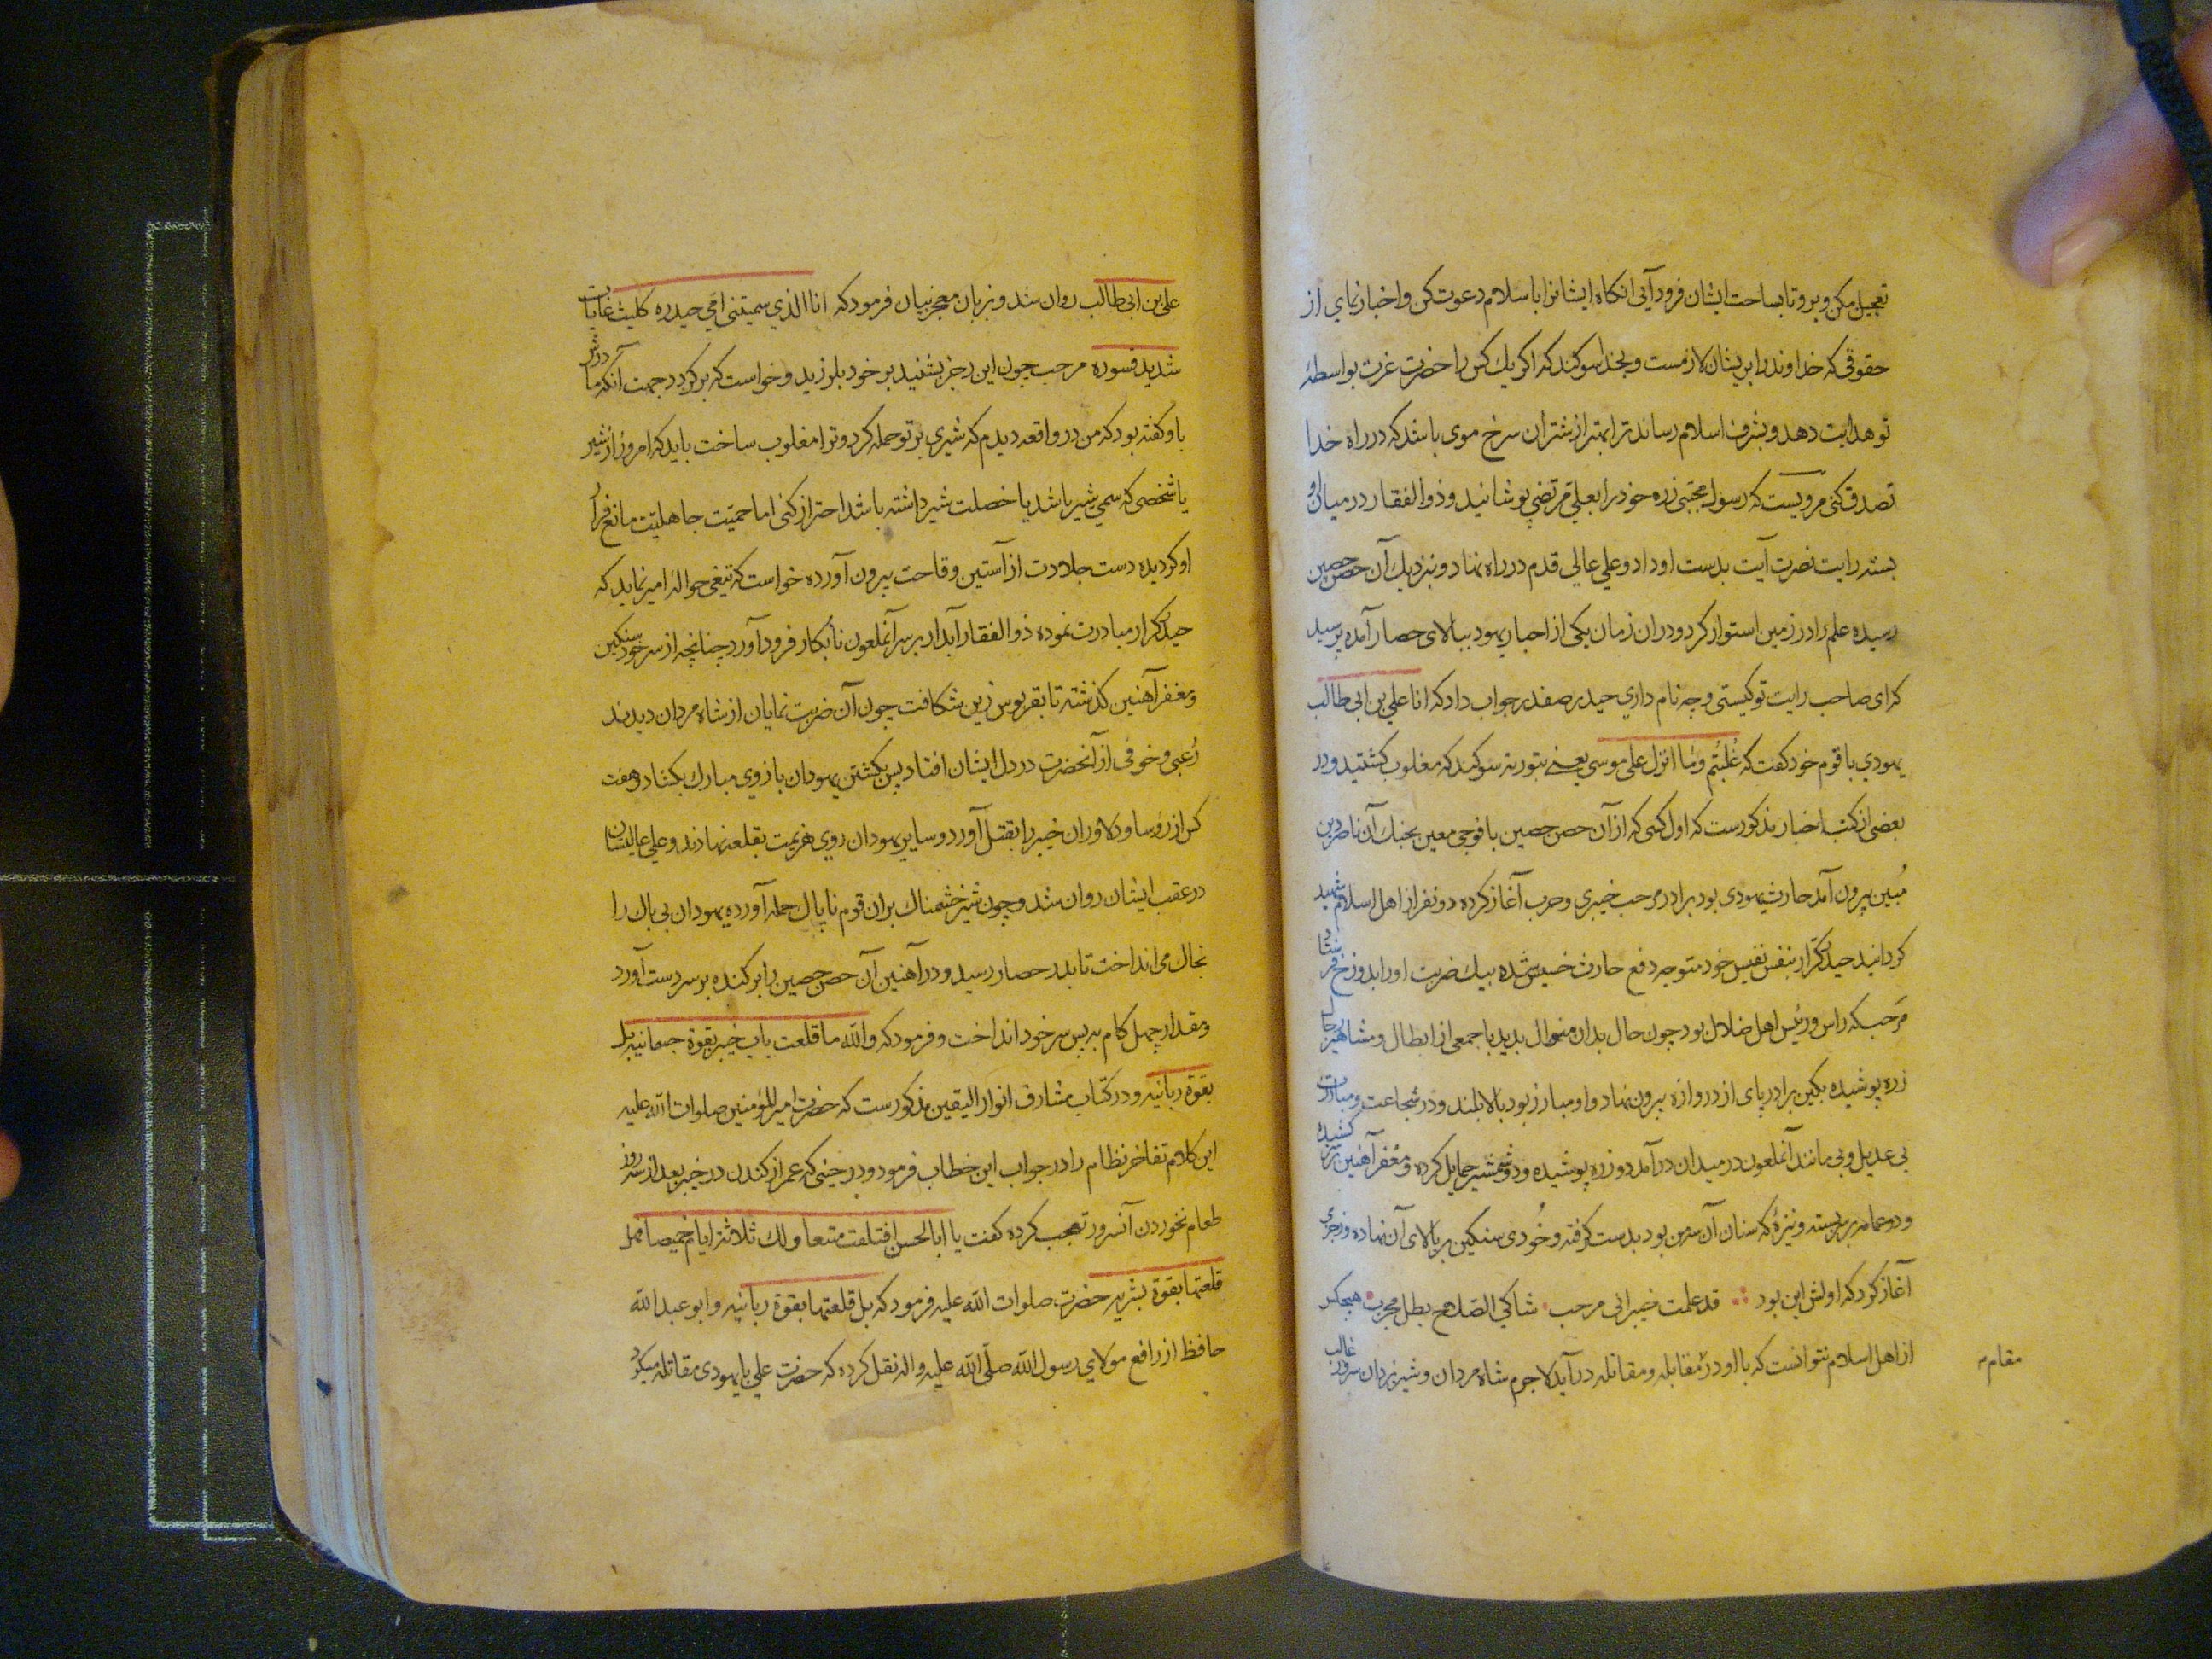 تعجیل مکن و برو تا بساحت ایشان فرود آیی انکاه ایشانرا باسلام دعوت کن و اخبار نمای از
حقوقی که خداوند را بریشان لازمست و بخدا سوکند که اکر یک کس را حضرت عزت بواسطهٔ
تو هدایت دهد و بشرف اسلام رساند ترا بهتر از شتران سرخ موی باشد که در راه خدا
تصدق کنی مرویست که رسول مجتبی زره خود را بعلی مرتضی پوشانید و ذوالفقار در میان او
بسته رایت نصرت آیت بدست او داد و علی عالی قدم در راه نهاد و بنزدیک آن حصن حصین
رسیده علم را در زمین استوار کرد و دران زمان یکی از احبار یهود ببالای حصار آمده پرسید
که ای صاحب رایت تو کیستی و چه نام داری حیدر صفدر جواب داد که انا علی بن ابی طالب
یهودی با قوم خود کفت که غُلبتُم وما انزل علی موسی یعنی بتوریة سوکند که مغلوب کشتید و در
بعضی از کتب اخبار مذکورست که اول کسی که از آن حصن حصین با فوجی معین بجنک آن ناصر دین
مُبین بیرون آمد حارث یهودی بود برادر مرحب خیبری و حرب آغاز کرده دو نفر از اهل اسلام شهید
کردانید حیدر کرّار بنفس نفیس خود متوجه دفع حارث خسیس شده بیک ضربت او را بدوزخ فرستاد
مَرحَب که راس و رئیس اهل ضلال بود چون حال بدان منوال بدید با جمعی از ابطال و مشاهیر رجال
زره پوشیده بکین برادر پای از دروازه بیرون نهاد و او مبارز بود بالا بلند و در شجاعت و مبارزت
بی عدیل و بی مانند آنملعون در میدان درآمد دو زره پوشیده و دو شمشیر حمایل کرده و مغفر آهنین بر سر کشیده
و دو عمامه بر سر بسته و نیزهٔ که سنان آن سه من بود بدست کرفته و خُودی سنکین بر بالای آن نهاده و رجزی
آغاز کرد که اولش این بود ∴ قد علمت خیبر انی مرحب ∙ شاکی السّلاح بطل مجرب ∙ هیچکس
از اهل اسلام نتوانست که با او در مقابله و مقاتله درآید لاجرم شاه مردان و شیر یزدان سرور غالب
مقام
علی بن ابی طالب روان شد و بزبان معجز بیان فرمود که انا الذی سمیتنی امی حیدره کلیث غابات
شدید قسوره مرحب چون این رجز بشنید بر خود بلرزید و خواست که بر کردد جهت آنکه مادرش
باو کفته بود که من در واقعه دیدم که شیری بر تو حمله کرد و ترا مغلوب ساخت باید که امروز از شیر
یا شخصی که سمی شیر باشد یا خصلت شیر داشته باشد احتراز کنی اما حمیّت جاهلیّت مانع فرار
او کردیده دست جلادت از آستین وقاحت بیرون آورده خواست که تیغی حوالهٔ امیر نماید که
حیدر کرار مبادرت نموده ذوالفقار آبدار بر سر آنملعون نابکار فرود آورد چنانچه از سر خود سنکین
و مغفر آهنین کذشته تا بقربوس زین شکافت چون آن ضربت نمایان از شاه مردان دیدند
رُعبی و خوفی از آنحضرت در دل ایشان افتاد پس بکشتن یهودان بازوی مبارک بکشاد و هفت
کس از رؤسا و دلاوران خیبر را بقتل آورد و سایر یهودان روی هزیمت بقلعه نهادند و علی عالیشان
در عقب ایشان روان شد و چون شیر خشمناک بران قوم ناپاک حمله آورده یهودان بی باک را
بخاک می انداخت تا بدر حصار رسید و در آهنین آن حصن حصین را بر کنده بر سر دست آورد
و مقدار چهل کام به پس سر خود انداخت و فرمود که والله ما قلعت باب خیبر بقوة جسمانیة بل
بقوة ربانیه و در کتاب مشارق انوار الیقین مذکورست که حضرت امیر المؤمنین صلوات الله علیه
این کلام تفاخر نظام را در جواب این خطاب فرمود و در حینی که عمر از کندن در خیبر بعد از سه روز
طعام نخوردن آنسرور تعجب کرده کفت یا ابا الحسن اقتلعت منیعا ولک ثلاثة ایام خمیصا فهل
قلعتها بقوة بشریه حضرت صلوات الله علیه فرمود که بل قلعتها بقوة ربانیه و ابو عبد الله
حافظ از رافع مولای رسول الله صلّی الله علیه واله نقل کرده که حضرت علی با یهودی مقاتله میکرد